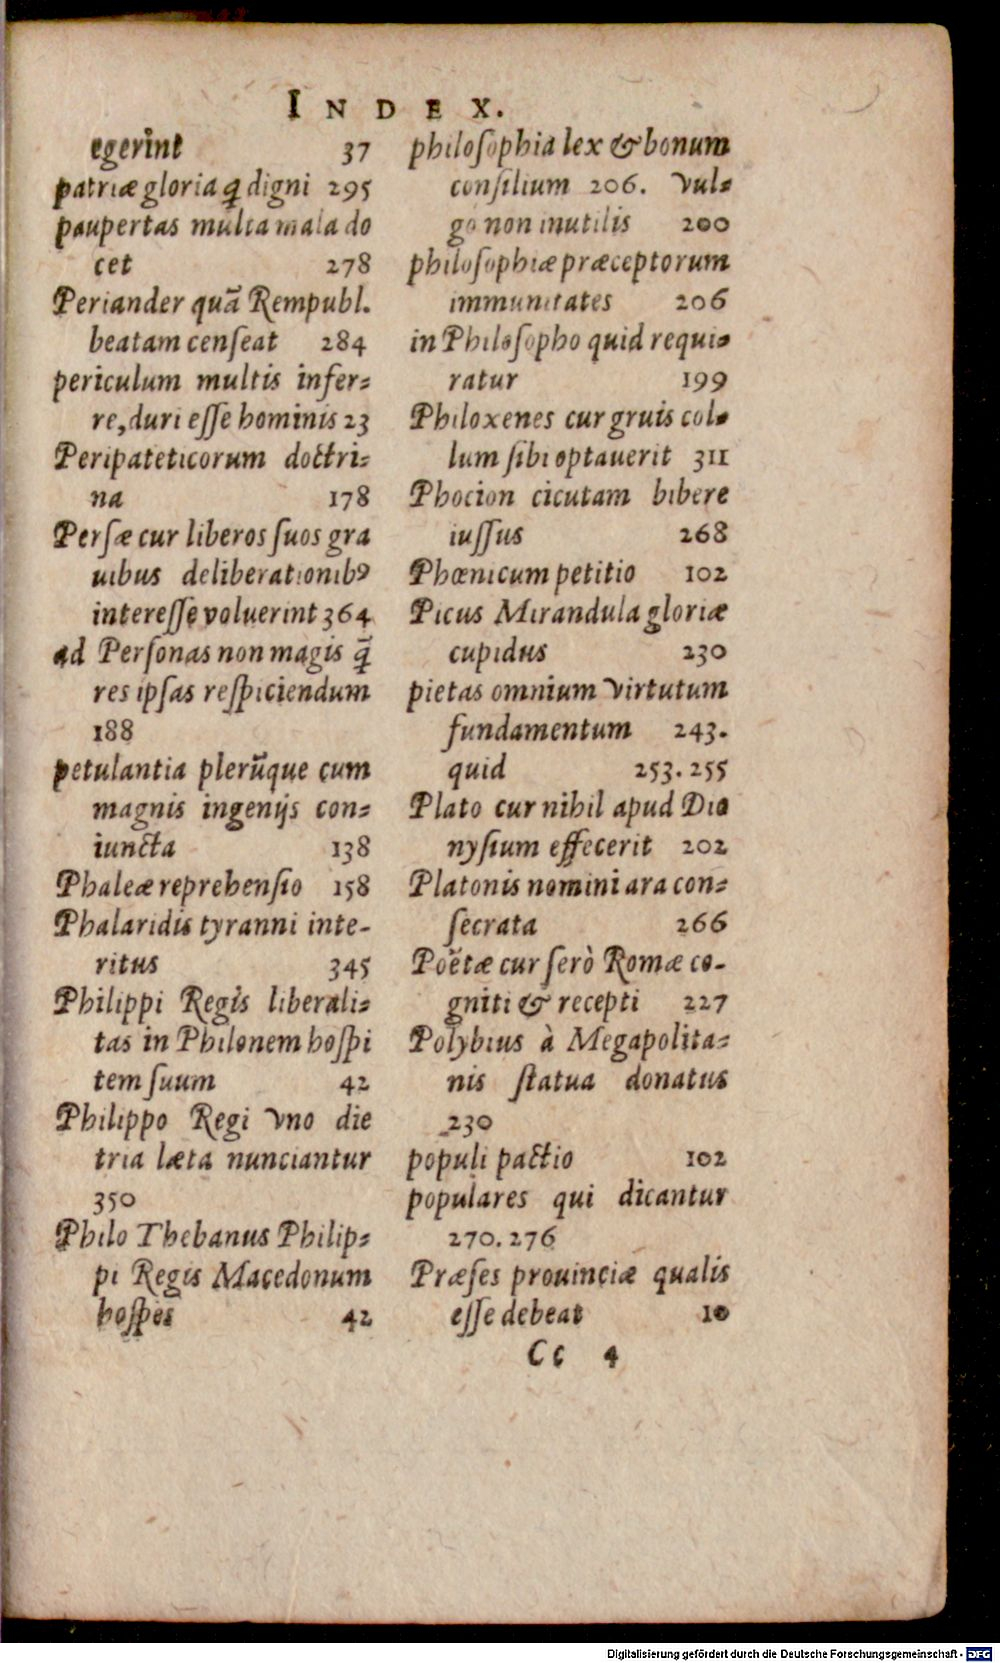 INDEX.
egerint 37
patriæ gloria q̃ digni 295
paupertas multa mala do
cet 278
Periander quã Rempubl.
beatam censeat 284
periculum multis infer=
re, duri esse hominis 23
Peripateticorum doctri=
na 178
Persæ cur liberos suos gra
uibus deliberationibꝰ
interesse voluerint 364
ad Personas non magis q̃
res ipsas respiciendum
188
petulantia plerũque cum
magnis ingenijs con=
iuncta 138
Phaleæ reprehensio 158
Phalaridis tyranni inte-
ritus 345
Philippi Regis liberali=
tas in Philonem hospi
tem suum 42
Philippo Regi vno die
tria læta nunciantur
350
Philo Thebanus Philip=
pi Regis Macedonum
hospes 42
philosophia lex & bonum
consilium 206. vul=
go non inutilis 200
philosophiæ præceptorum
immunitates 206
in Philosopho quid requi=
ratur 199
Philoxenes cur gruis col=
lum sibi optauerit 311
Phocion cicutam bibere
iussus 268
Phœnicum petitio 102
Picus Mirandula gloriæ
cupidus 230
pietas omnium virtutum
fundamentum 243.
quid 253. 255
Plato cur nihil apud Dio
nysium effecerit 202
Platonis nomini ara con=
secrata 266
Poëtæ cur serò Romæ co-
gniti & recepti 227
Polybius à Megapolita=
nis statua donatus
230
populi pactio 102
populares qui dicantur
270. 276
Præses prouinciæ qualis
esse debeat 10
Cc 4
Digitalisierung gefördert durch die Deutsche Forschungsgemeinschaft - DFG